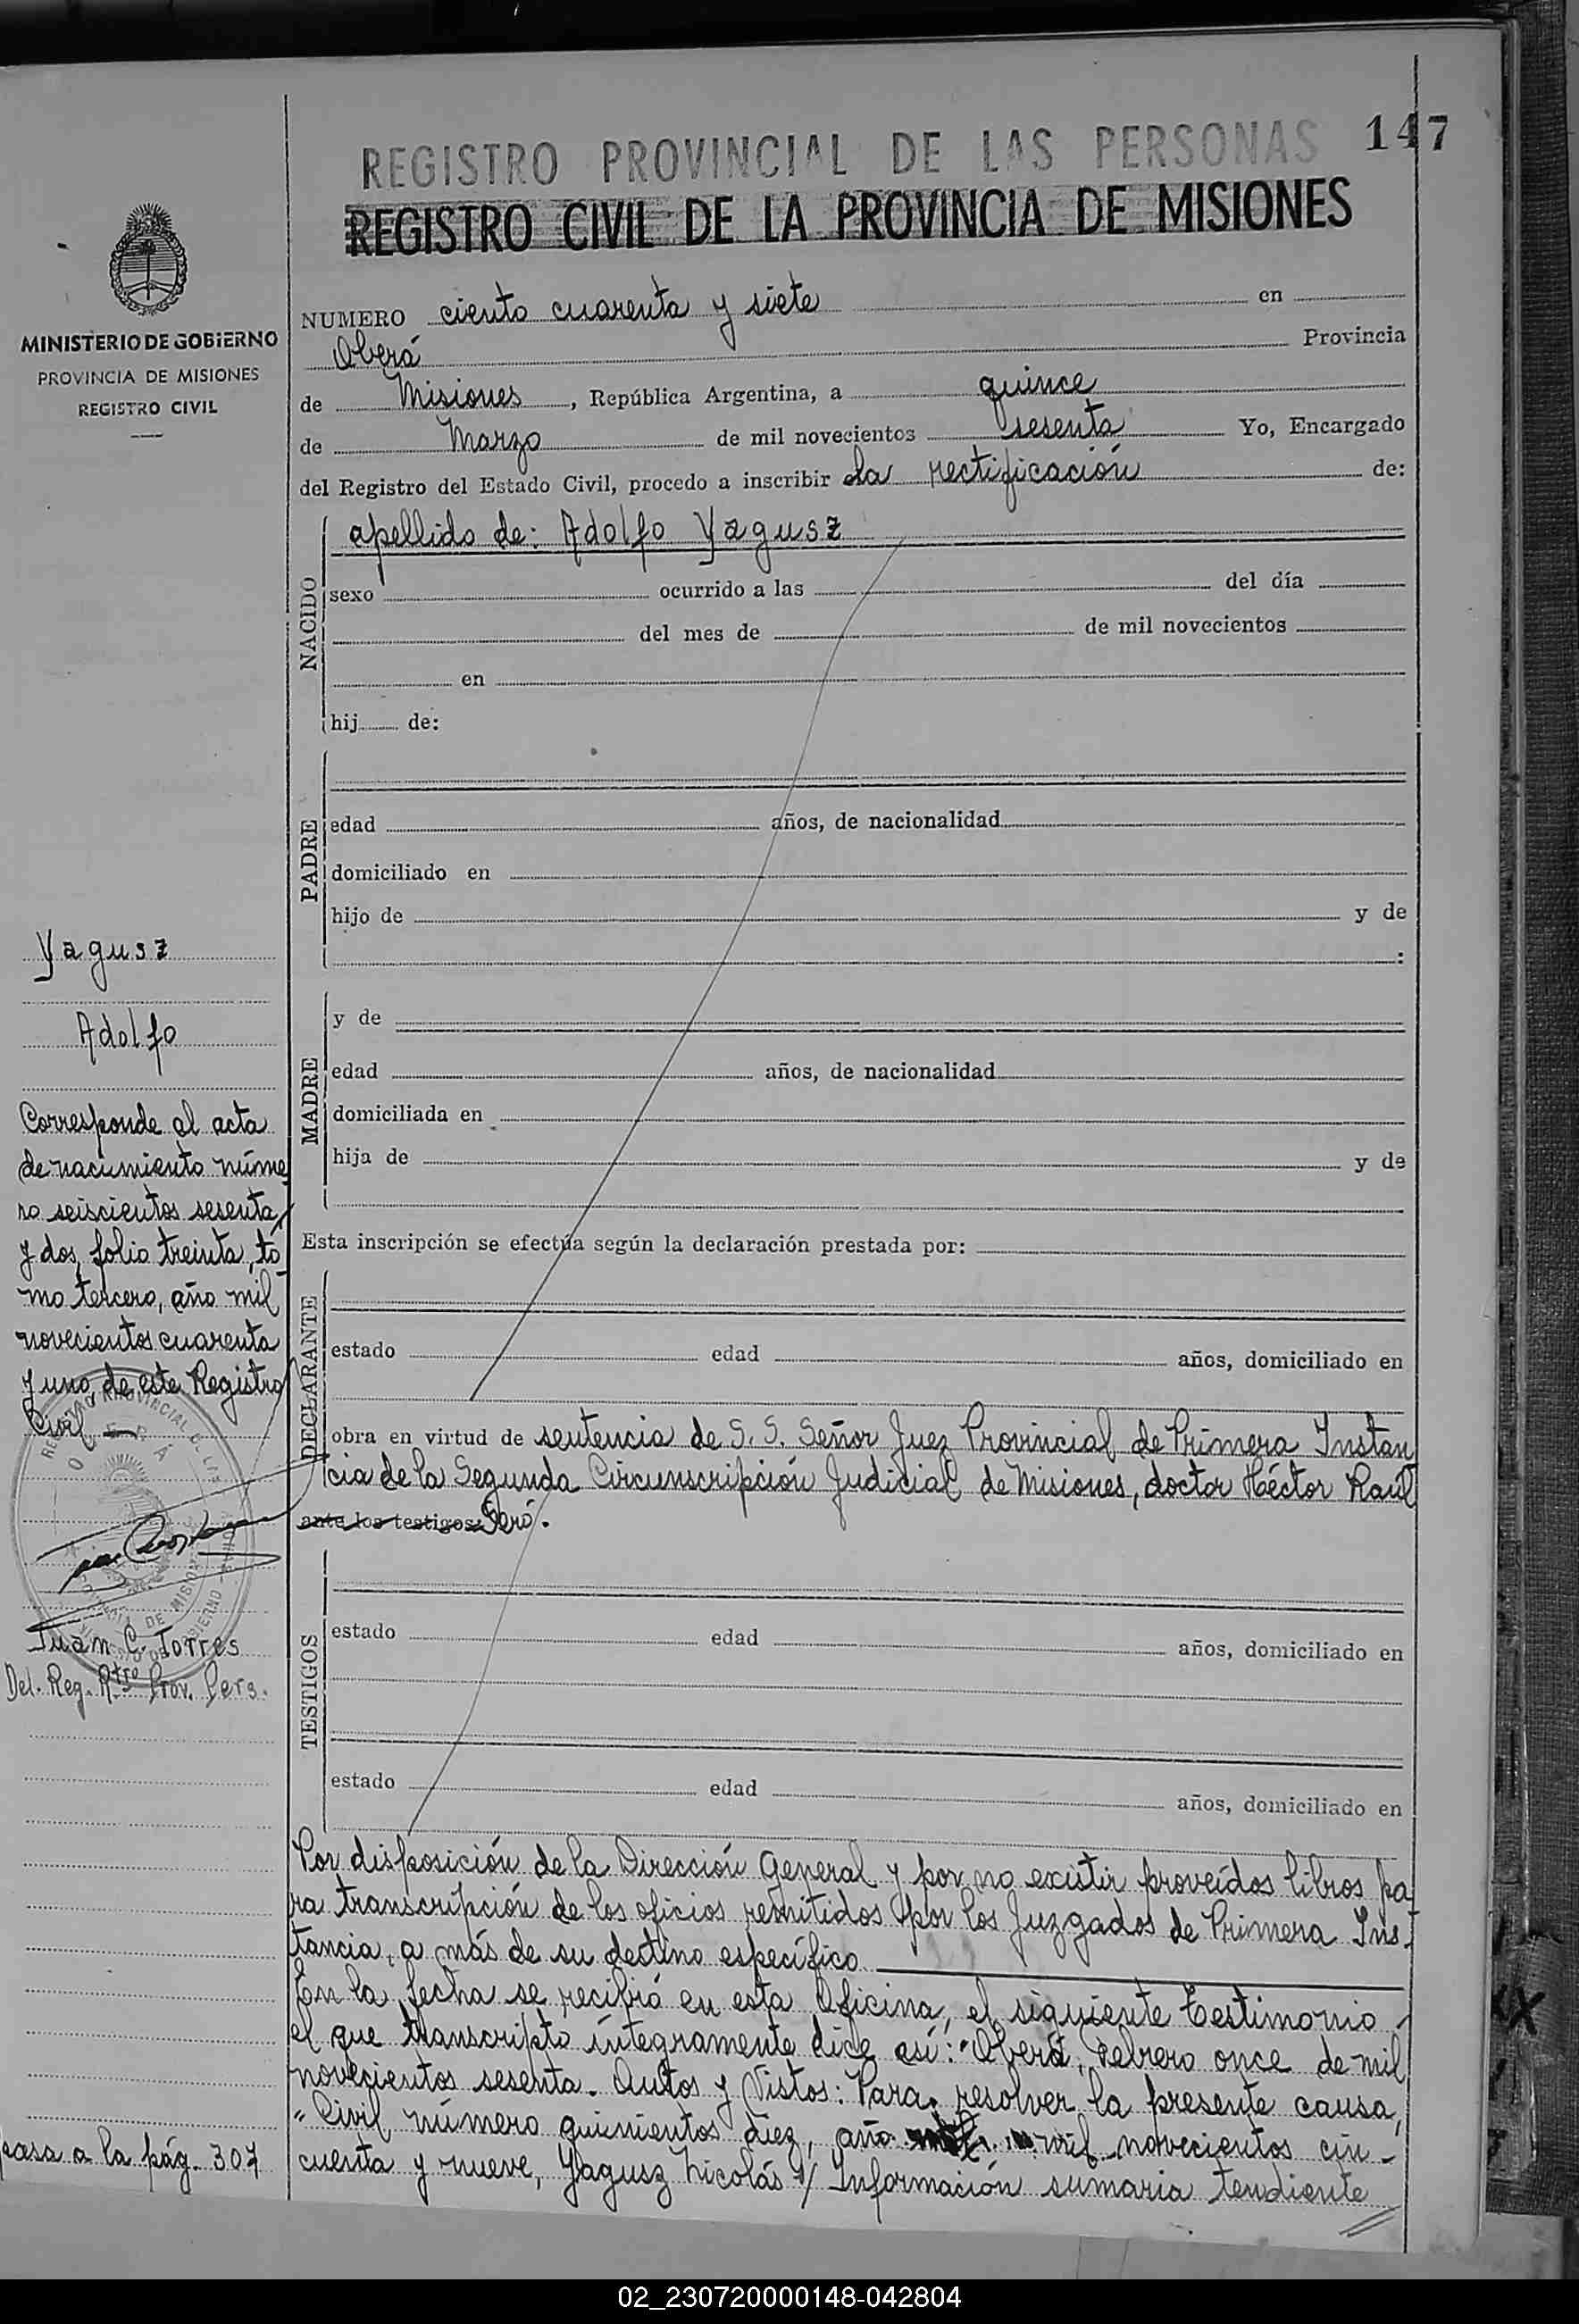 147
REGISTRO PROVINCIAL DE LAS PERSONAS
REGISTRO CIVIL DE LA PROVINCIA DE MISIONES
MINISTERIO DE GOBIERNO
PROVINCIA DE MISIONES
REGISTRO CIVIL
NUMERO ciento cuarenta y siete en
Oberá Provincia
de Misiones, República Argentina, a quince
de Marzo de mil novecientos sesenta Yo, Encargado
del Registro del Estado Civil, procedo a inscribir la rectificación de:
NACIDO
apellido de: Adolfo Yagusz
sexo ocurrido a las del día
del mes de de mil novecientos
en
hij de:
PADRE
edad años, de nacionalidad
domiciliado en
hijo de y de
:
MADRE
y de
edad años, de nacionalidad
domiciliada en
hija de y de
Esta inscripción se efectúa según la declaración prestada por:
DECLARANTE
estado edad años, domiciliado en
obra en virtud de sentencia de S. S. Señor Juez Provincial de Primera Instan
cia de la Segunda Circunscripción Judicial de Misiones, doctor Héctor Raúl
ante los testigos: Peró.
TESTIGOS
estado edad años, domiciliado en
estado edad años, domiciliado en
Por disposición de la Dirección General y por no existir proveídos libros pa
ra transcripción de los oficios remitidos por los Juzgados de Primera Ins-
tancia, a más de su destino específico
En la fecha se recibió en esta Oficina, el siguiente testimonio
el que transcripto íntegramente dice así: "Oberá, Febrero once de mil
novecientos sesenta. Autos y Vistos: Para resolver la presente causa,
" Civil número quinientos diez, año mil novecientos cin-
cuenta y nueve, Yagusz Nicolás s/ Información sumaria tendiente
Yagusz
Adolfo
Corresponde al acta
de nacimiento núme
ro seiscientos sesenta
y dos, folio treinta, to
mo tercero, año mil
novecientos cuarenta
y uno, de este Registro
Civil
REGISTRO PROVINCIAL DE LAS
OBERÁ
Juan C. Torres
Del. Reg. Rtro Prov. Pers.
pasa a la pág. 307
02_230720000148-042804